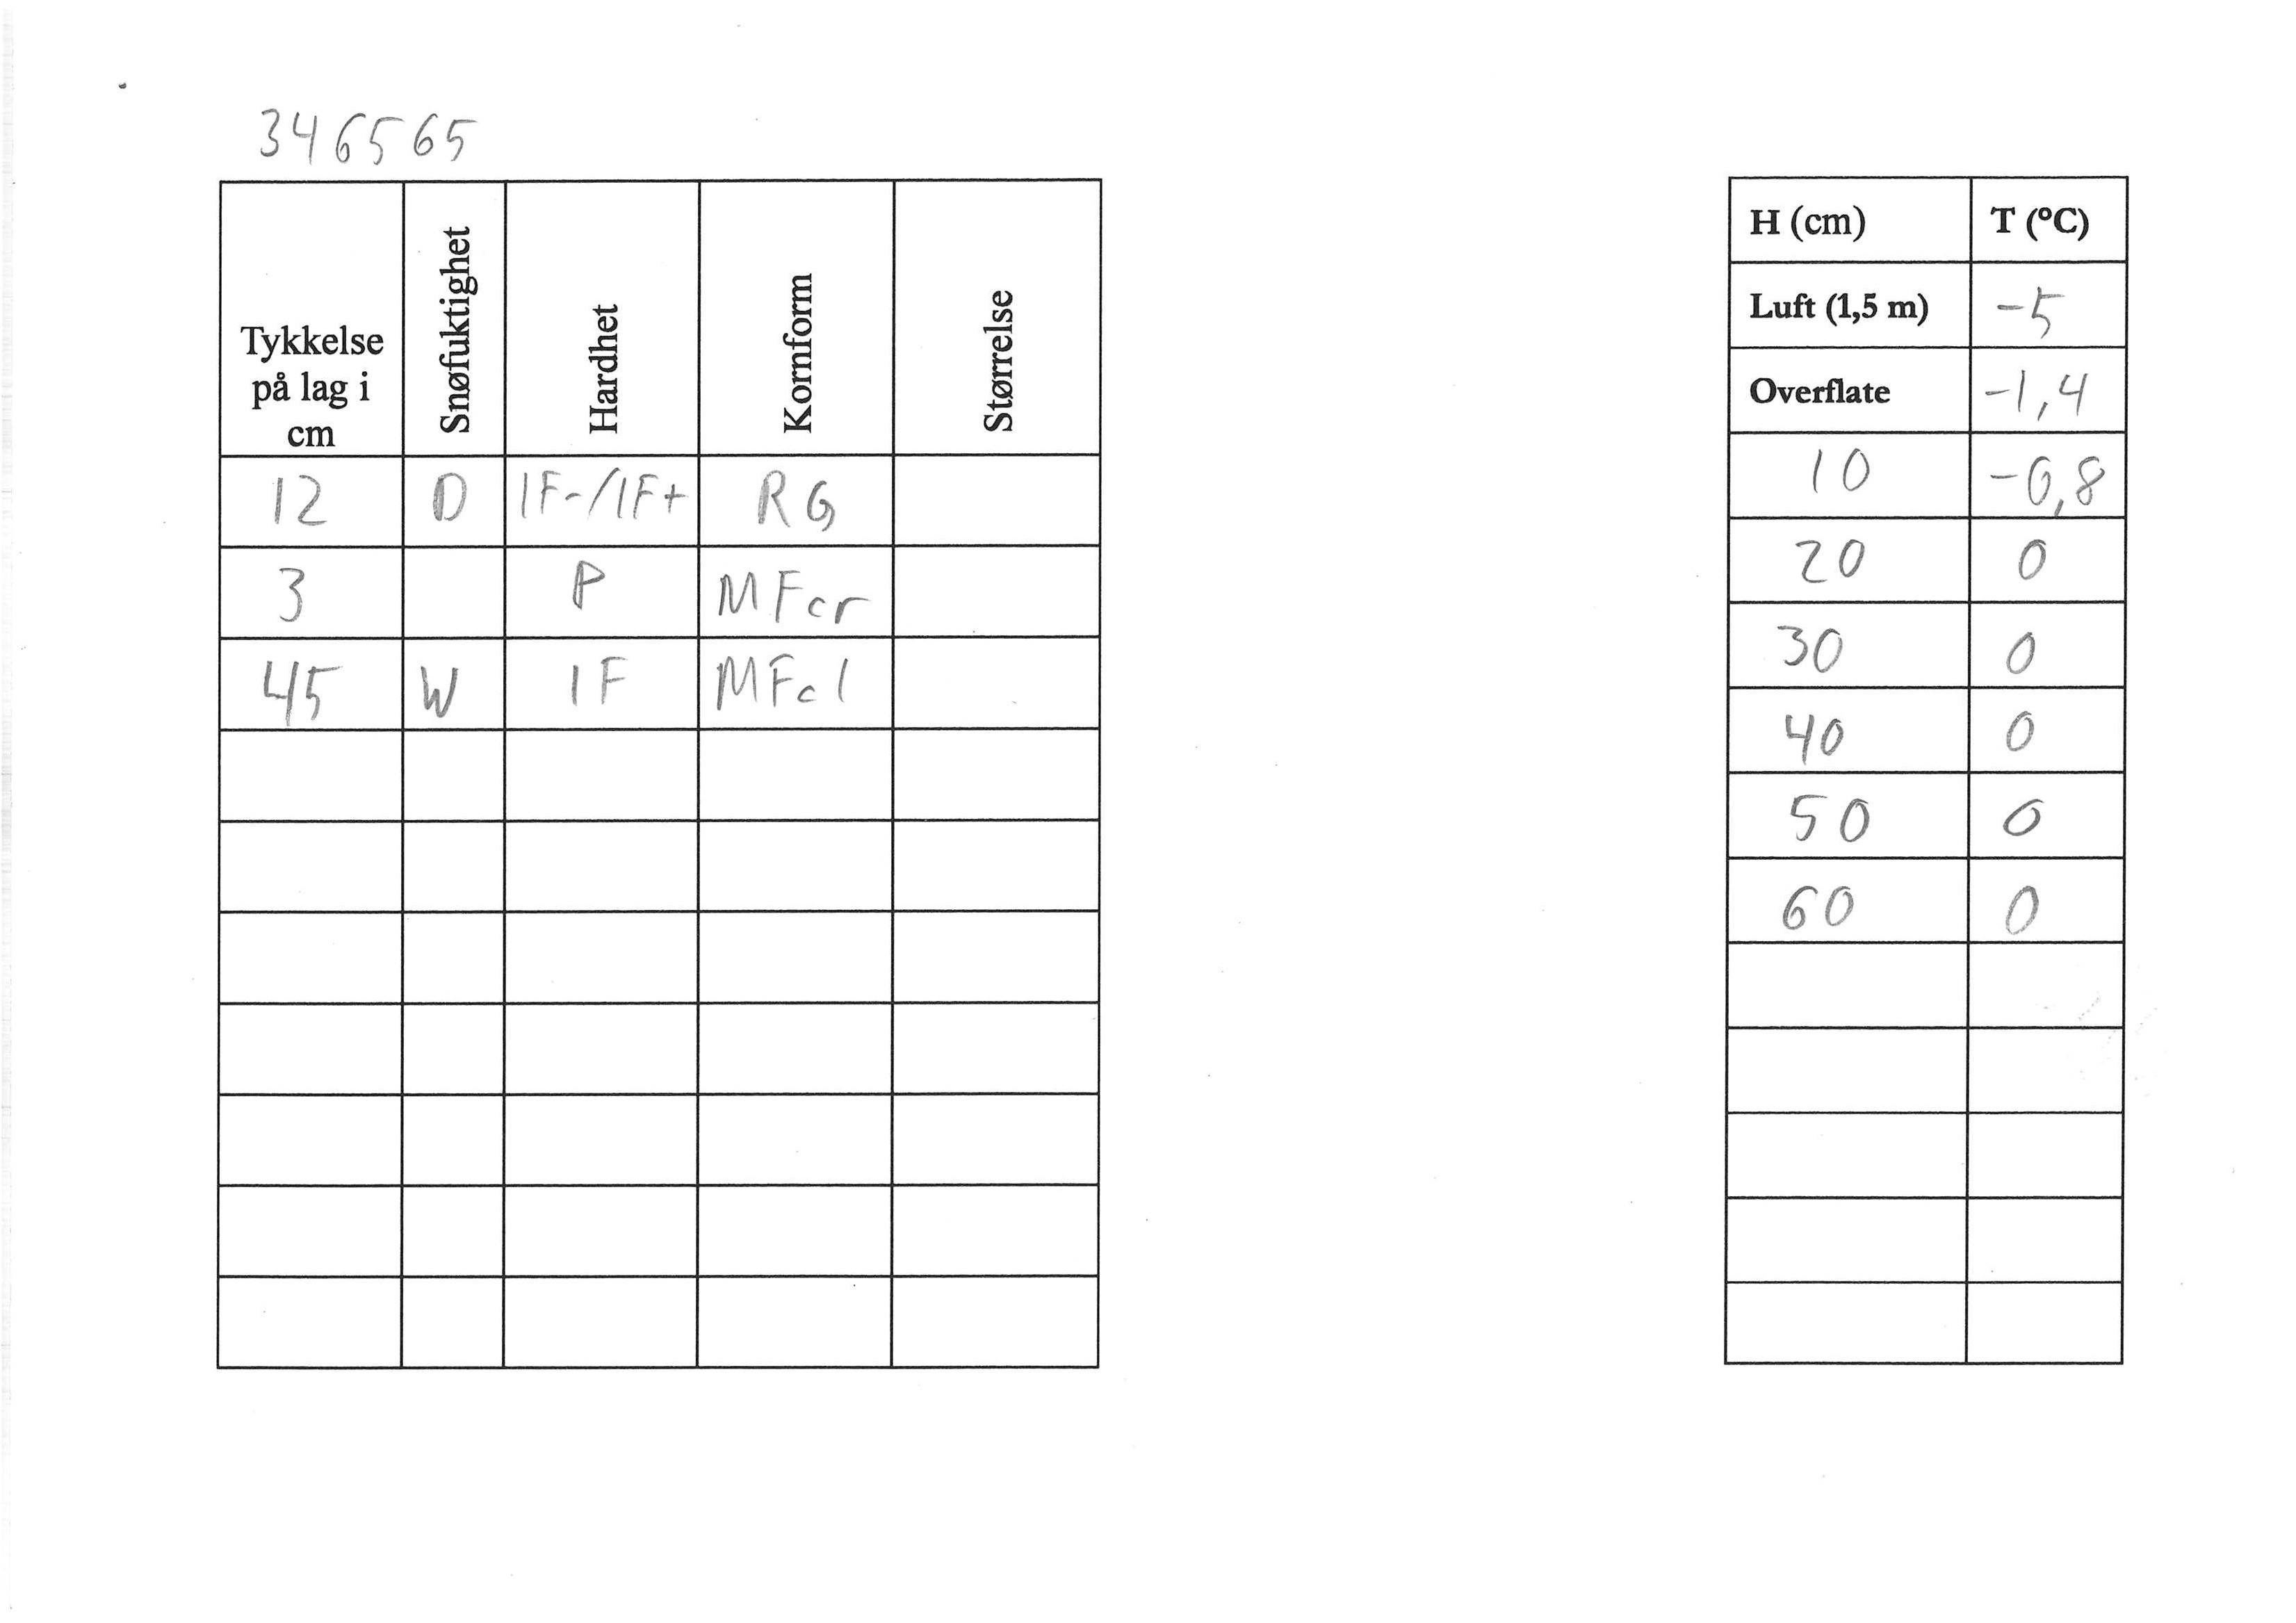 346565
Tykkelse på lag i cm Snøfuktighet Hardhet Kornform Størrelse
12 D 1F-/1F+ RG
3 P MFcr
45 W 1F MFcl
H (cm) T (°C)
Luft (1,5 m) -5
Overflate -1,4
10 -0,8
20 0
30 0
40 0
50 0
60 0